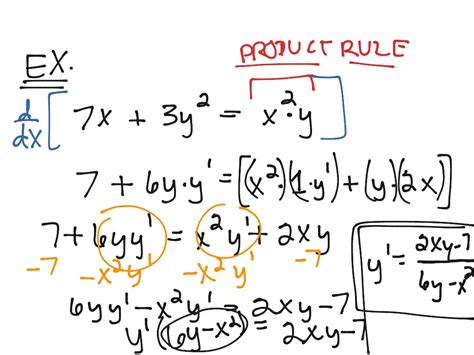 EX.
PRODUCT RULE
d/dx [ 7x + 3y² = x²·y ]
7 + 6y·y' = [(x²)(1·y') + (y)(2x)]
7 + 6yy' = x²y' + 2xy
-7 -x²y' -x²y' -7
6yy' - x²y' = 2xy - 7
y'(6y-x² = 2xy-7
y' = 2xy-7 / 6y-x²